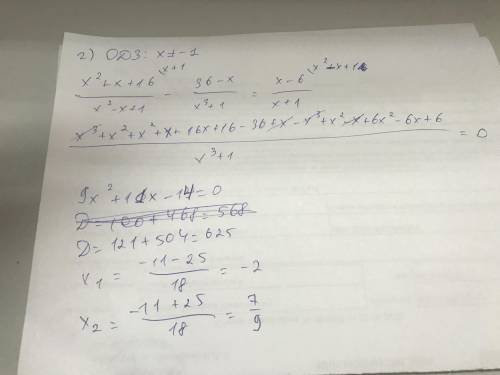 2) ОДЗ: x ≠ -1
(x² + x + 16)/(x² - x + 1) ^(x+1) - (36 - x)/(x³ + 1) = (x - 6)/(x + 1) ^(x² - x + 1)
(x³ + x² + x² + x + 16x + 16 - 36 + x - x³ + x² - x + 6x² - 6x + 6)/(x³ + 1) = 0
9x² + 11x - 14 = 0
D = 100 + 468 = 568
D = 121 + 504 = 625
x₁ = (-11 - 25)/18 = -2
x₂ = (-11 + 25)/18 = 7/9